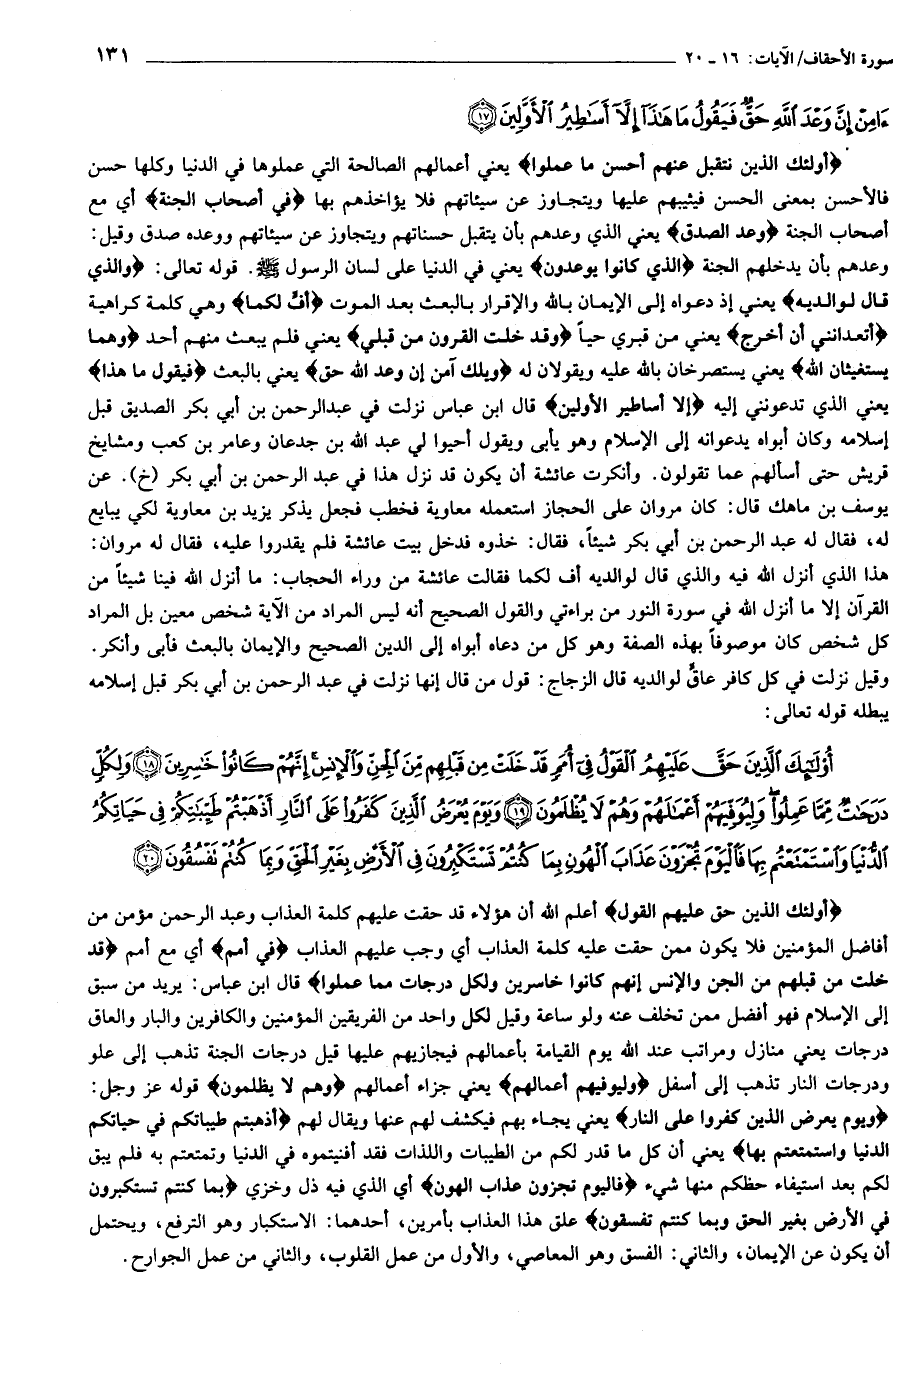 سورة الأحقاف/ الآيات: ١٦ - ٢٠ ١٣١
ءَامِنْ إِنَّ وَعْدَ اللَّهِ حَقٌّ فَيَقُولُ مَا هَٰذَآ إِلَّآ أَسَٰطِيرُ الْأَوَّلِينَ ١٧
﴿أولئك الذين نتقبل عنهم أحسن ما عملوا﴾ يعني أعمالهم الصالحة التي عملوها في الدنيا وكلها حسن
فالأحسن بمعنى الحسن فيثيبهم عليها ويتجاوز عن سيئاتهم فلا يؤاخذهم بها ﴿في أصحاب الجنة﴾ أي مع
أصحاب الجنة ﴿وعد الصدق﴾ يعني الذي وعدهم بأن يتقبل حسناتهم ويتجاوز عن سيئاتهم ووعده صدق وقيل:
وعدهم بأن يدخلهم الجنة ﴿الذي كانوا يوعدون﴾ يعني في الدنيا على لسان الرسول ﷺ. قوله تعالى: ﴿والذي
قال لوالديه﴾ يعني إذ دعواه إلى الإيمان بالله والإقرار بالبعث بعد الموت ﴿أفٍّ لكما﴾ وهي كلمة كراهية
﴿أتعدانني أن أخرج﴾ يعني من قبري حياً ﴿وقد خلت القرون من قبلي﴾ يعني فلم يبعث منهم أحد ﴿وهما
يستغيثان الله﴾ يعني يستصرخان بالله عليه ويقولان له ﴿ويلك آمن إن وعد الله حق﴾ يعني بالبعث ﴿فيقول ما هذا﴾
يعني الذي تدعونني إليه ﴿إلا أساطير الأولين﴾ قال ابن عباس نزلت في عبدالرحمن بن أبي بكر الصديق قبل
إسلامه وكان أبواه يدعوانه إلى الإسلام وهو يأبى ويقول أحيوا لي عبد الله بن جدعان وعامر بن كعب ومشايخ
قريش حتى أسألهم عما تقولون. وأنكرت عائشة أن يكون قد نزل هذا في عبد الرحمن بن أبي بكر (خ). عن
يوسف بن ماهك قال: كان مروان على الحجاز استعمله معاوية فخطب فجعل يذكر يزيد بن معاوية لكي يبايع
له، فقال له عبد الرحمن بن أبي بكر شيئاً، فقال: خذوه فدخل بيت عائشة فلم يقدروا عليه، فقال له مروان:
هذا الذي أنزل الله فيه والذي قال لوالديه أف لكما فقالت عائشة من وراء الحجاب: ما أنزل الله فينا شيئاً من
القرآن إلا ما أنزل الله في سورة النور من براءتي والقول الصحيح أنه ليس المراد من الآية شخص معين بل المراد
كل شخص كان موصوفاً بهذه الصفة وهو كل من دعاه أبواه إلى الدين الصحيح والإيمان بالبعث فأبى وأنكر.
وقيل نزلت في كل كافر عاقٍّ لوالديه قال الزجاج: قول من قال إنها نزلت في عبد الرحمن بن أبي بكر قبل إسلامه
يبطله قوله تعالى:
أُوْلَٰٓئِكَ الَّذِينَ حَقَّ عَلَيْهِمُ الْقَوْلُ فِيٓ أُمَمٍ قَدْ خَلَتْ مِن قَبْلِهِم مِّنَ الْجِنِّ وَالْإِنسِ إِنَّهُمْ كَانُوا۟ خَٰسِرِينَ ١٨ وَلِكُلٍّ
دَرَجَٰتٌ مِّمَّا عَمِلُوا۟ وَلِيُوَفِّيَهُمْ أَعْمَٰلَهُمْ وَهُمْ لَا يُظْلَمُونَ ١٩ وَيَوْمَ يُعْرَضُ الَّذِينَ كَفَرُوا۟ عَلَى النَّارِ أَذْهَبْتُمْ طَيِّبَٰتِكُمْ فِي حَيَاتِكُمُ
الدُّنْيَا وَاسْتَمْتَعْتُم بِهَا فَالْيَوْمَ تُجْزَوْنَ عَذَابَ الْهُونِ بِمَا كُنتُمْ تَسْتَكْبِرُونَ فِي الْأَرْضِ بِغَيْرِ الْحَقِّ وَبِمَا كُنتُمْ نَفْسُقُونَ ٢٠
﴿أولئك الذين حق عليهم القول﴾ أعلم الله أن هؤلاء قد حقت عليهم كلمة العذاب وعبد الرحمن مؤمن من
أفاضل المؤمنين فلا يكون ممن حقت عليه كلمة العذاب أي وجب عليهم العذاب ﴿في أمم﴾ أي مع أمم ﴿قد
خلت من قبلهم من الجن والإنس إنهم كانوا خاسرين ولكل درجات مما عملوا﴾ قال ابن عباس: يريد من سبق
إلى الإسلام فهو أفضل ممن تخلف عنه ولو ساعة وقيل لكل واحد من الفريقين المؤمنين والكافرين والبار والعاق
درجات يعني منازل ومراتب عند الله يوم القيامة بأعمالهم فيجازيهم عليها قيل درجات الجنة تذهب إلى علو
ودرجات النار تذهب إلى أسفل ﴿وليوفيهم أعمالهم﴾ يعني جزاء أعمالهم ﴿وهم لا يظلمون﴾ قوله عز وجل:
﴿ويوم يعرض الذين كفروا على النار﴾ يعني يجاء بهم فيكشف لهم عنها ويقال لهم ﴿أذهبتم طيباتكم في حياتكم
الدنيا واستمتعتم بها﴾ يعني أن كل ما قدر لكم من الطيبات واللذات فقد أفنيتموه في الدنيا وتمتعتم به فلم يبق
لكم بعد استيفاء حظكم منها شيء ﴿فاليوم تجزون عذاب الهون﴾ أي الذي فيه ذل وخزي ﴿بما كنتم تستكبرون
في الأرض بغير الحق وبما كنتم تفسقون﴾ علق هذا العذاب بأمرين، أحدهما: الاستكبار وهو الترفع، ويحتمل
أن يكون عن الإيمان، والثاني: الفسق وهو المعاصي، والأول من عمل القلوب، والثاني من عمل الجوارح.